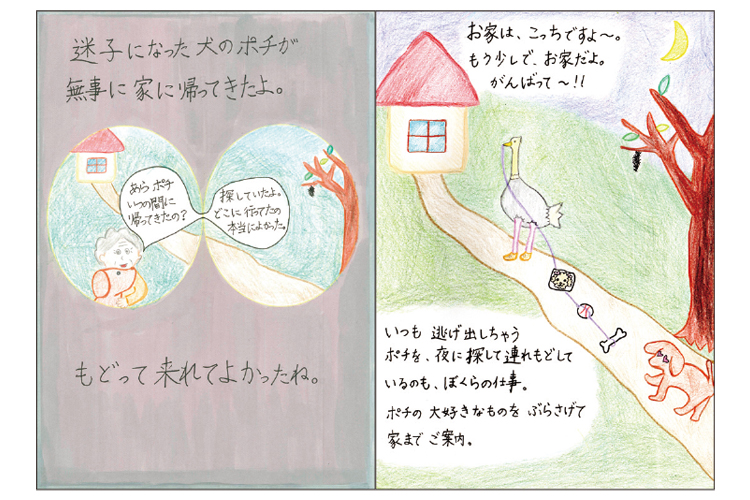 迷子になった犬のポチが
無事に家に帰ってきたよ。
あらポチ
いつの間に
帰ってきたの？
探していたよ。
どこに行ってたの
本当によかった。
もどって来れてよかったね。
お家は、こっちですよ〜。
もう少しで、お家だよ。
がんばって〜!!
いつも逃げ出しちゃう
ポチを、夜に探して連れもどして
いるのも、ぼくらの仕事。
ポチの大好きなものをぶらさげて
家までご案内。